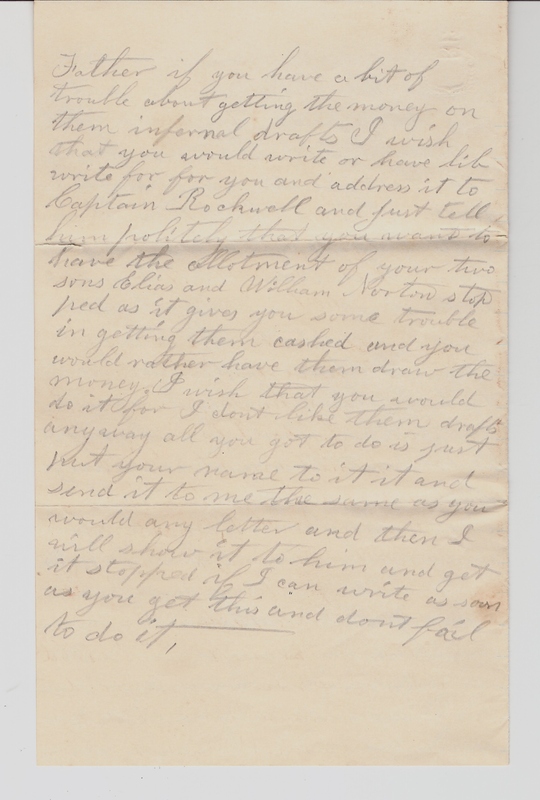 Father if you have a bit of
trouble about getting the money on
them infernal drafts I wish
that you would write or have lib
write for for you and address it to
Captain Rockwell and just tell
him politely that you want to
have the allotment of your two
sons Elias and William Norton stop
ped as it gives you some trouble
in getting them cashed and you
would rather have them draw the
money. I wish that you would
do it for I dont like them drafts
anyway all you got to do is just
put your name to it it and
send it to me the same as you
would any letter and then I
will show it to him and get
it stopped if I can write as soon
as you get this and dont fail
to do it,